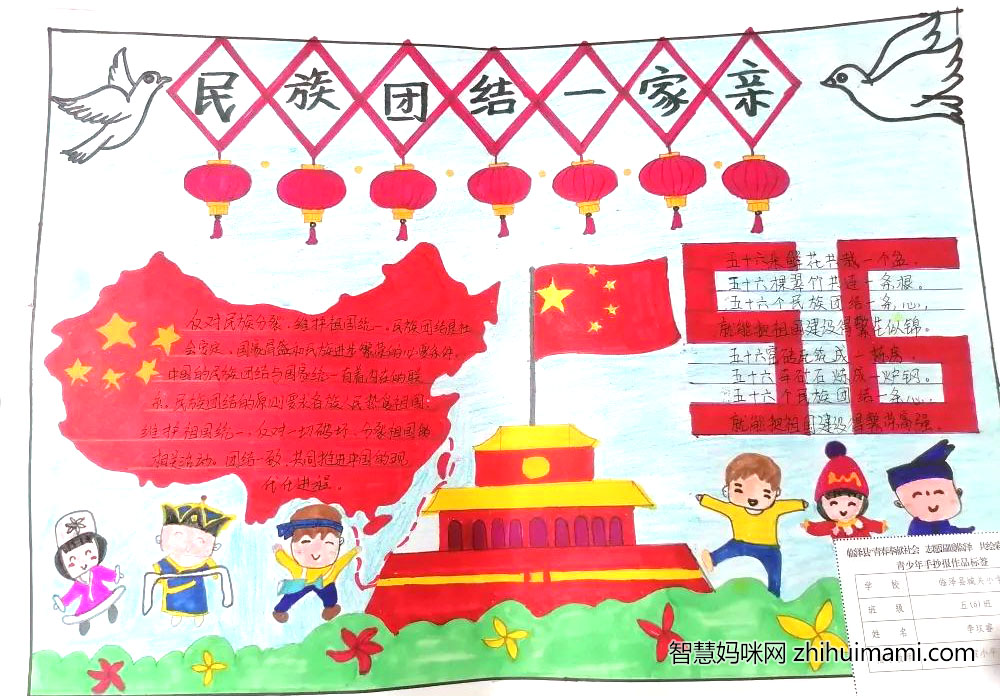 民族团结一家亲
反对民族分裂，维护祖国统一。民族团结是社
会安定、国家昌盛和民族进步繁荣的必要条件。
中国的民族团结与国家统一有着内在的联
系。民族团结的原则要求各族人民热爱祖国，
维护祖国统一，反对一切破坏、分裂祖国的
相关活动。团结一致，共同推进中国的现
代化进程。
五十六朵鲜花共栽一个盆，
五十六棵翠竹共连一条根。
五十六个民族团结一条心，
就能把祖国建设得繁花似锦。
五十六
五十六车矿石炼成一炉钢。
五十六个民族团结一条心，
就能把祖国建设得繁荣富强。
临泽县"青春奉献社会
青少年手抄报作品标签
学校 临泽县城关小学
班级 五(6)班
姓名 李
智慧妈咪网 zhihuimami.com